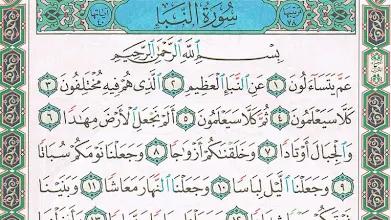 سُورَةُ النَّبَإِ
بِسْمِ ٱللَّهِ ٱلرَّحْمَٰنِ ٱلرَّحِيمِ
عَمَّ يَتَسَآءَلُونَ ١ عَنِ ٱلنَّبَإِ ٱلْعَظِيمِ ٢ ٱلَّذِى هُمْ فِيهِ مُخْتَلِفُونَ ٣
كَلَّا سَيَعْلَمُونَ ٤ ثُمَّ كَلَّا سَيَعْلَمُونَ ٥ أَلَمْ نَجْعَلِ ٱلْأَرْضَ مِهَٰدًا ٦
وَٱلْجِبَالَ أَوْتَادًا ٧ وَخَلَقْنَٰكُمْ أَزْوَٰجًا ٨ وَجَعَلْنَا نَوْمَكُمْ سُبَاتًا
٩ وَجَعَلْنَا ٱلَّيْلَ لِبَاسًا ١٠ وَجَعَلْنَا ٱلنَّهَارَ مَعَاشًا ١١ وَبَنَيْنَا